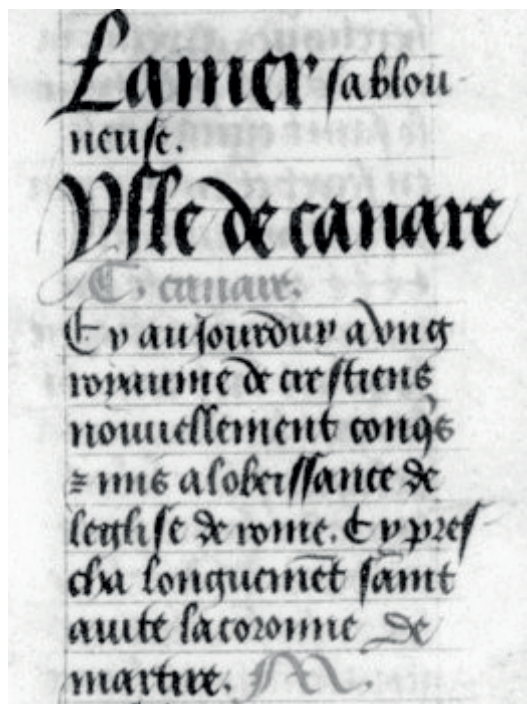 Lamer sablou
neuse.
Ysle de canare
C. canare.
Cy aujourduy a vng
royaume de crestiens
nouuellement conq̃s
⁊ mis a lobeissance de
leglise de rome. Cy pres
cha longuemẽt saint
auite la coronne de
martire.